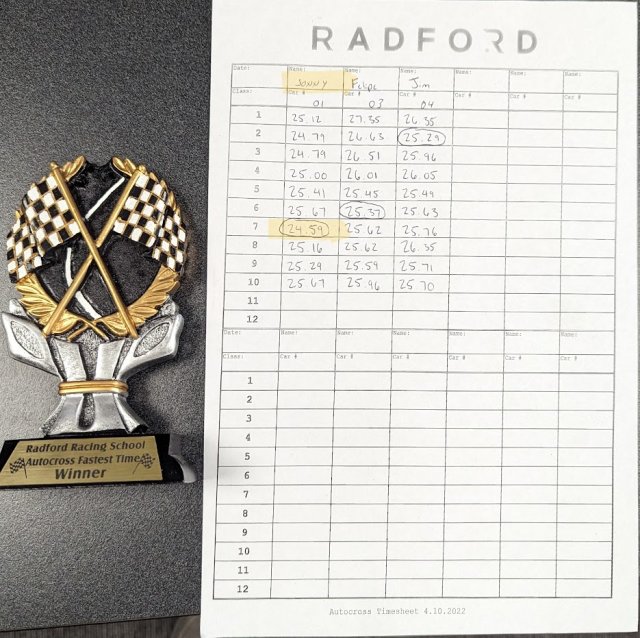 RADFORD
Date: Name: Name: Name: Name: Name: Name:
Jonny Felipe Jim
Class: Car # Car # Car # Car # Car # Car #
01 03 04
1 25.12 27.35 26.35
2 24.79 26.63 25.29
3 24.79 26.51 25.96
4 25.00 26.01 26.05
5 25.41 25.45 25.49
6 25.67 25.37 25.63
7 24.59 25.62 25.76
8 25.16 25.62 26.35
9 25.29 25.59 25.71
10 25.67 25.96 25.70
11
12
Date: Name: Name: Name: Name: Name: Name:
Class: Car # Car # Car # Car # Car # Car #
1
2
3
4
5
6
7
8
9
10
11
12
Autocross Timesheet 4.10.2022
Radford Racing School
Autocross Fastest Time
Winner